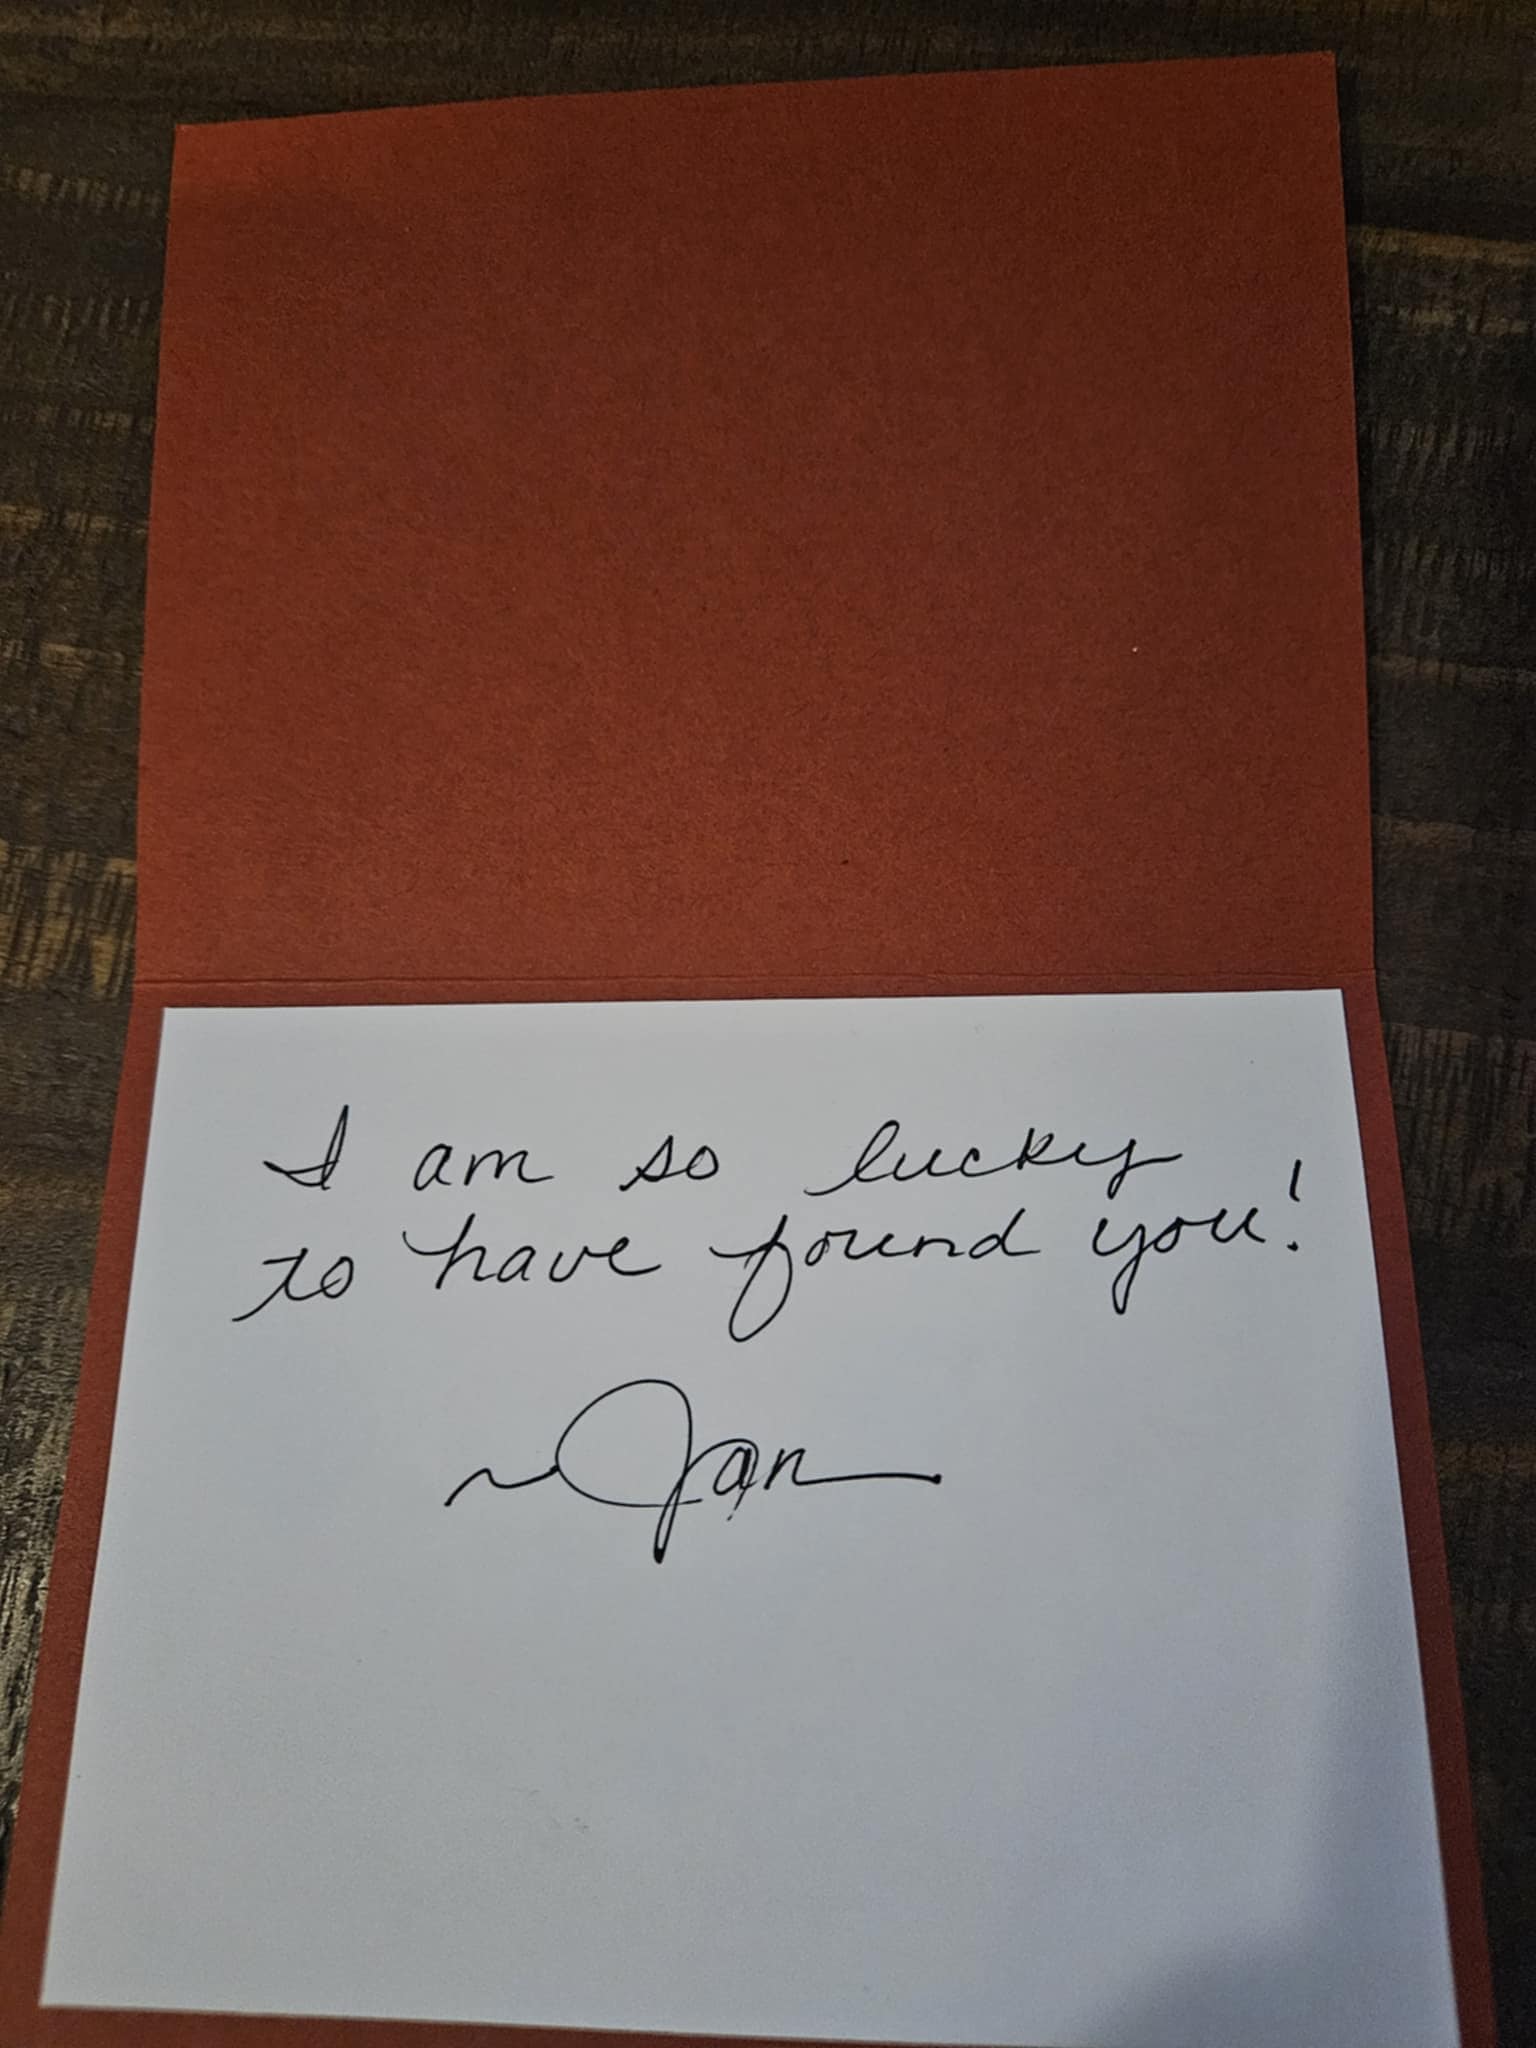 I am so lucky
to have found you!
~Jan